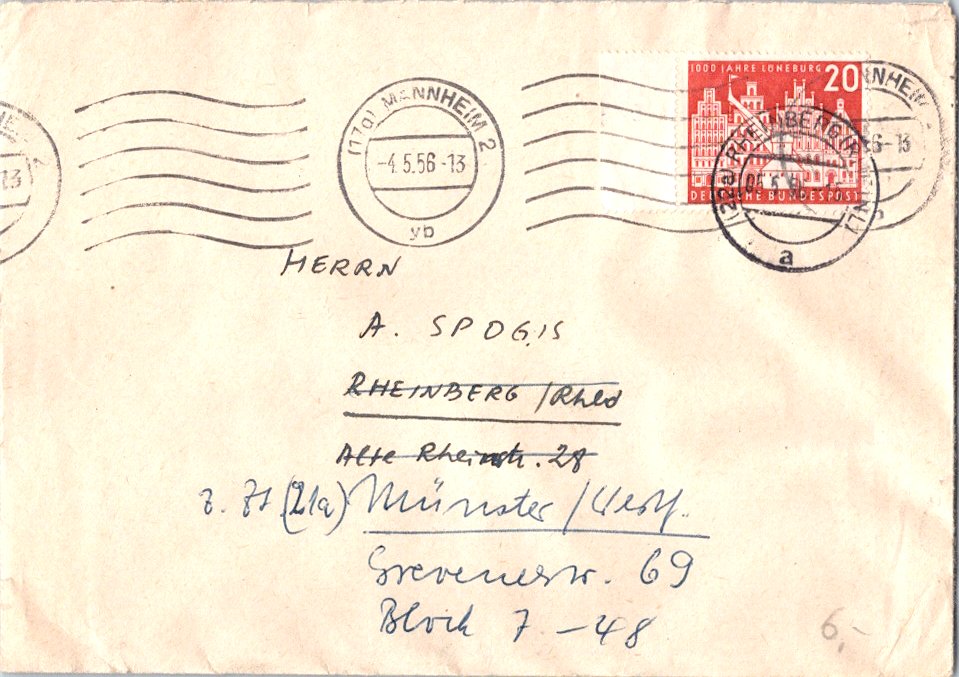 1000 JAHRE LÜNEBURG 20
DEUTSCHE BUNDESPOST
(17a) MANNHEIM 2
-4.5.56-13
yb
13
MANNHEIM
56-13
(22a) RHEINBERG (RHEINL)
a
HERRN
A. SPOGIS
RHEINBERG /Rhld
Alte Rheinstr. 28
z. Zt (21a) Münster /Westf.
Grevenerstr. 69
Block 7 -48
6,-